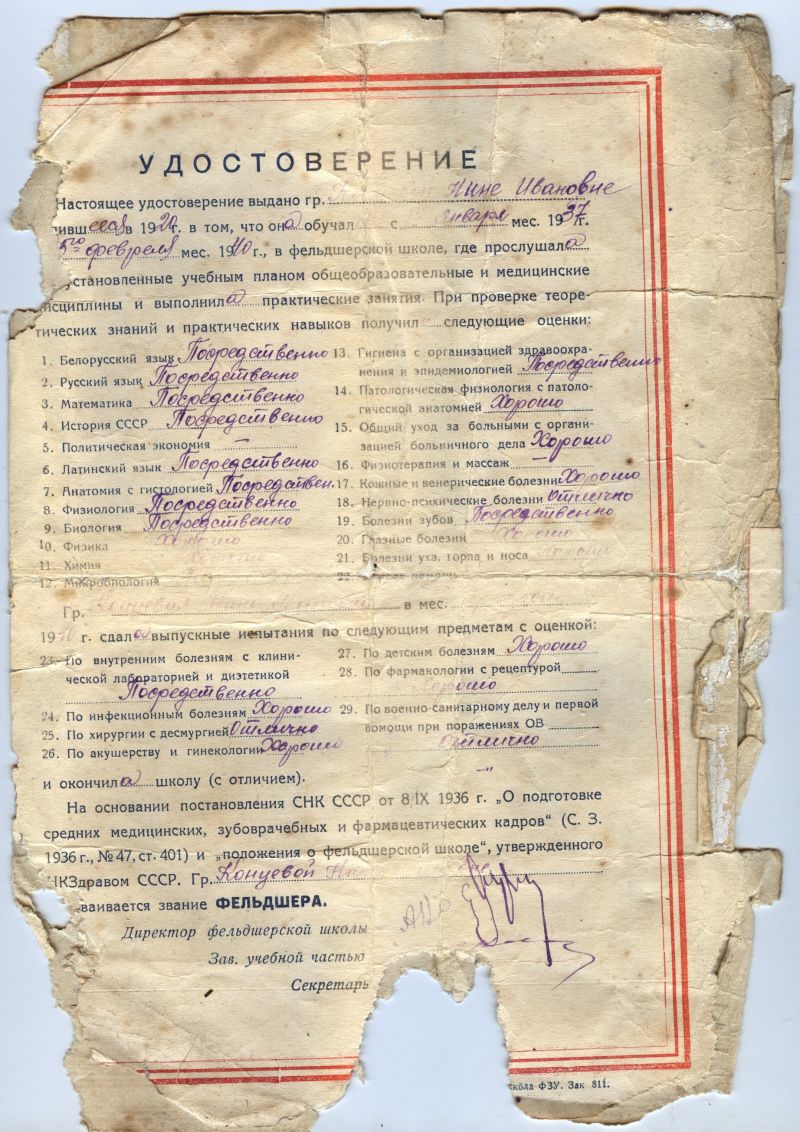 УДОСТОВЕРЕНИЕ
Настоящее удостоверение выдано гр. Нине Ивановне
ившейся в 1920 г. в том, что она обучал с января мес. 1937 г.
5го февраля мес. 1940 г., в фельдшерской школе, где прослушала
установленные учебным планом общеобразовательные и медицинские
исциплины и выполнила практические занятия. При проверке теоре-
тических знаний и практических навыков получил следующие оценки:
1. Белорусский язык Посредственно
2. Русский язык Посредственно
3. Математика Посредственно
4. История СССР Посредственно
5. Политическая экономия —
6. Латинский язык Посредственно
7. Анатомия с гистологией Посредствен.
8. Физиология Посредственно
9. Биология Посредственно
10. Физика Хорошо
11. Химия
12. Микробиология
13. Гигиена с организацией здравоохра-
нения и эпидемиологией Посредственно
14. Патологическая физиология с патоло-
гической анатомией Хорошо
15. Общий уход за больными с органи-
зацией больничного дела Хорошо
16. Физиотерапия и массаж —
17. Кожные и венерические болезни Хорошо
18. Нервно-психические болезни Отлично
19. Болезни зубов Посредственно
20. Глазные болезни Хорошо
21. Болезни уха, горла и носа Хорошо
22.
Гр. в мес.
1940 г. сдала выпускные испытания по следующим предметам с оценкой:
23. По внутренним болезням с клини-
ческой лабораторией и диэтетикой
Посредственно
24. По инфекционным болезням Хорошо
25. По хирургии с десмургией Отлично
26. По акушерству и гинекологии Хорошо
27. По детским болезням Хорошо
28. По фармакологии с рецептурой
Хорошо
29. По военно-санитарному делу и первой
помощи при поражениях ОВ
Отлично
и окончила школу (с отличием). —"—
На основании постановления СНК СССР от 8/IX 1936 г. „О подготовке
средних медицинских, зубоврачебных и фармацевтических кадров“ (С. З.
1936 г., № 47, ст. 401) и „положения о фельдшерской школе“, утвержденного
НКЗдравом СССР. Гр. Концевой
ваивается звание ФЕЛЬДШЕРА.
Директор фельдшерской школы
Зав. учебной частью
Секретарь
Школа ФЗУ. Зак 811.